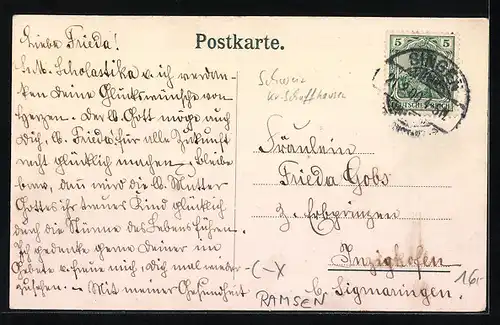 Liebe Frieda!
L. M. Scholastika u. ich verdan-
ken deine Glückswünsche von
Herzen. Der lb. Gott möge auch
Dich, lb. Frieda für alle Zukunft
recht glücklich machen; bleibe
brav, dann wird die lb. Mutter
Gottes ihr treues Kind glücklich
durch die Stürme des Lebens führen.
Ich gedenke gerne Deiner im
Gebete u. freue mich, Dich mal wieder
zu sehen. – Mit meiner Gesundheit
Postkarte.
5 5
SINGEN
DEUTSCHES REICH
Schweiz
Kt. Schaffhausen
Fräulein
Frieda Gobs
z. Erbprinzen
Inzigkofen
b. Sigmaringen.
16,-
(-X
RAMSEN